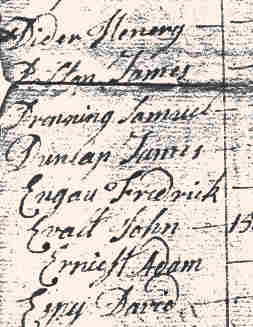 Dider Henery
James
Samuel
Dunlap James
Engau Fredrick
Evalt John
Erniest Adam
Espy David